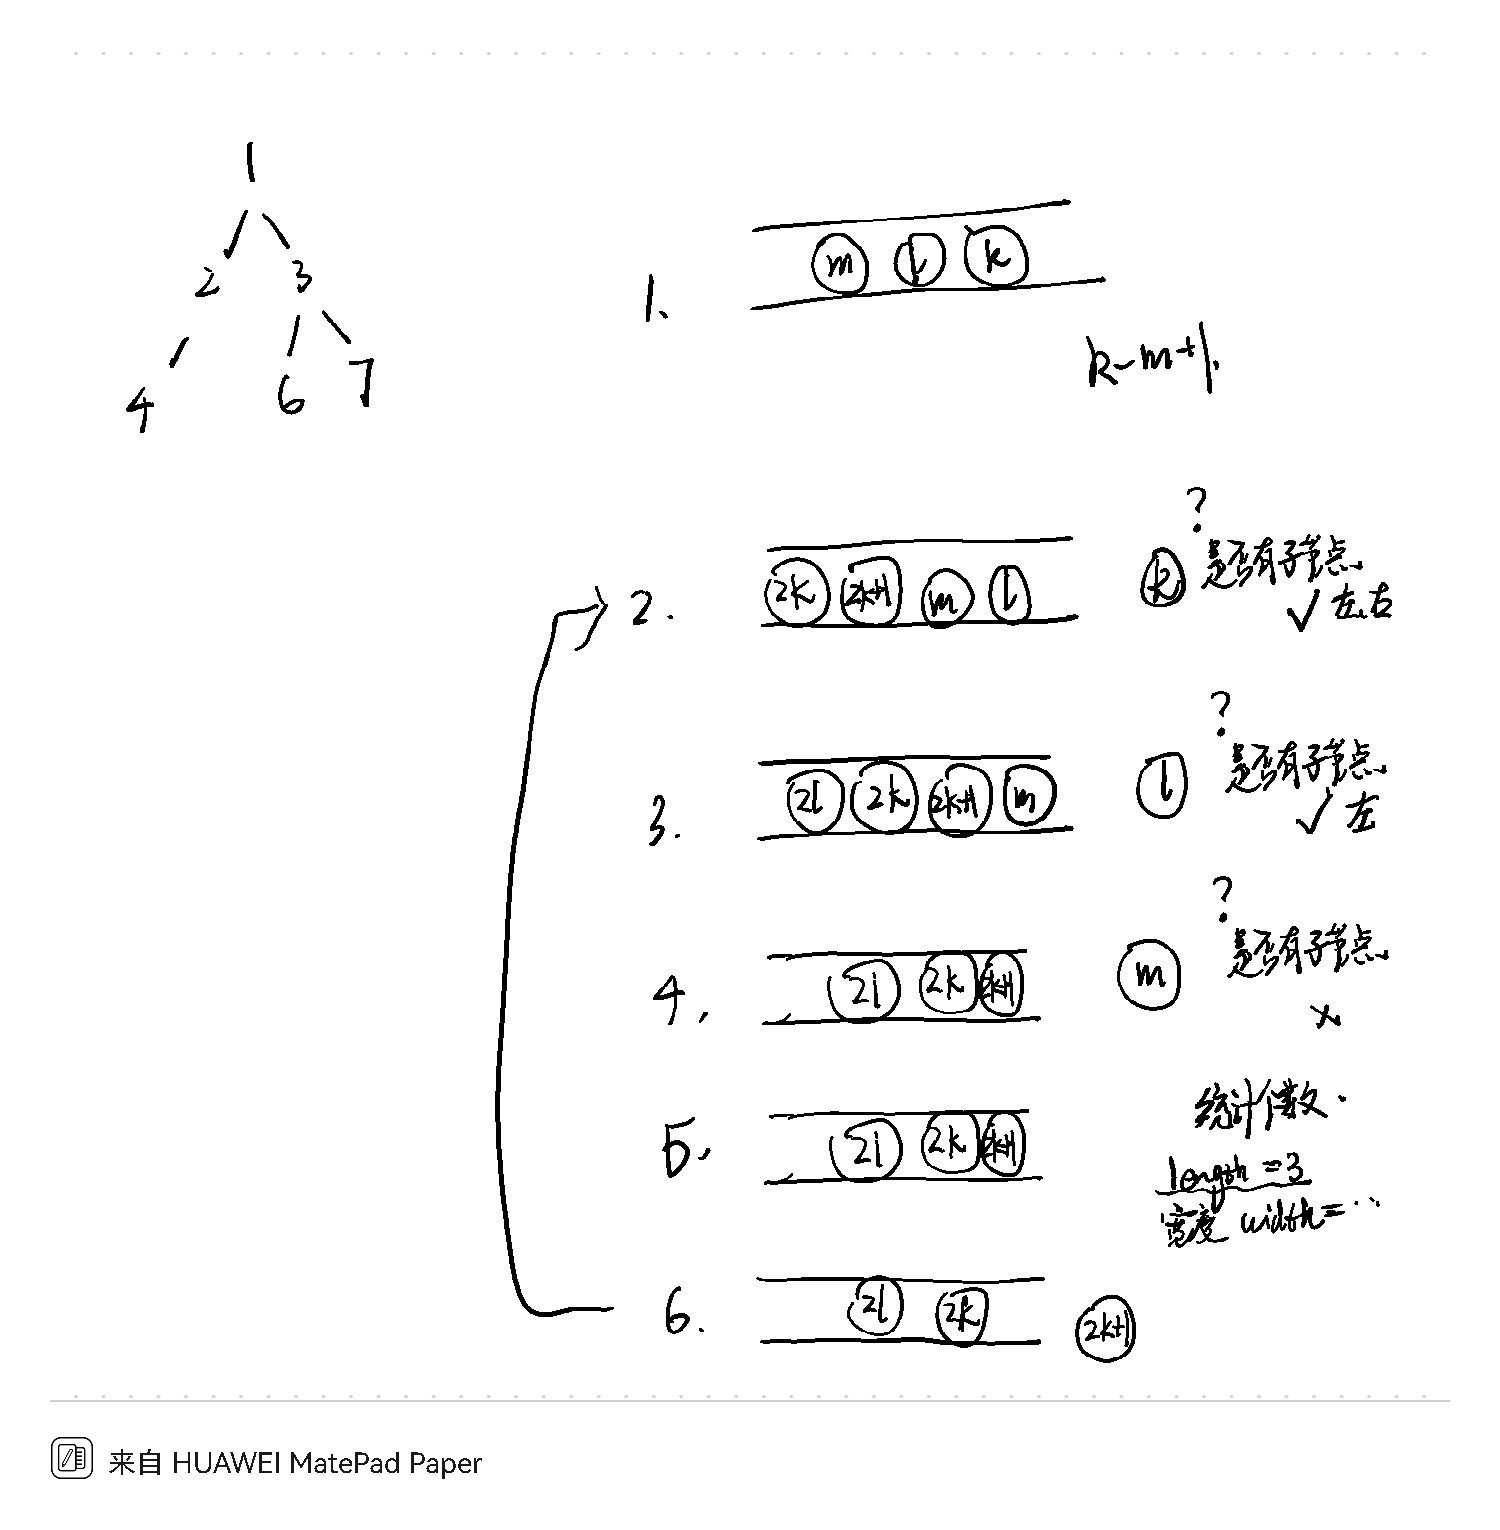 1
2 3
4 6 7
1. m l k
k-m+1.
2. 2k 2k+1 m l k ? 是否有子节点
✓ 左.右
3. 2l 2k 2k+1 m l ? 是否有子节点
✓ 左
4. 2l 2k 2k+1 m ? 是否有子节点
×
5. 2l 2k 2k+1 统计个数.
length=3
宽度 width=...
6. 2l 2k 2k+1
来自 HUAWEI MatePad Paper